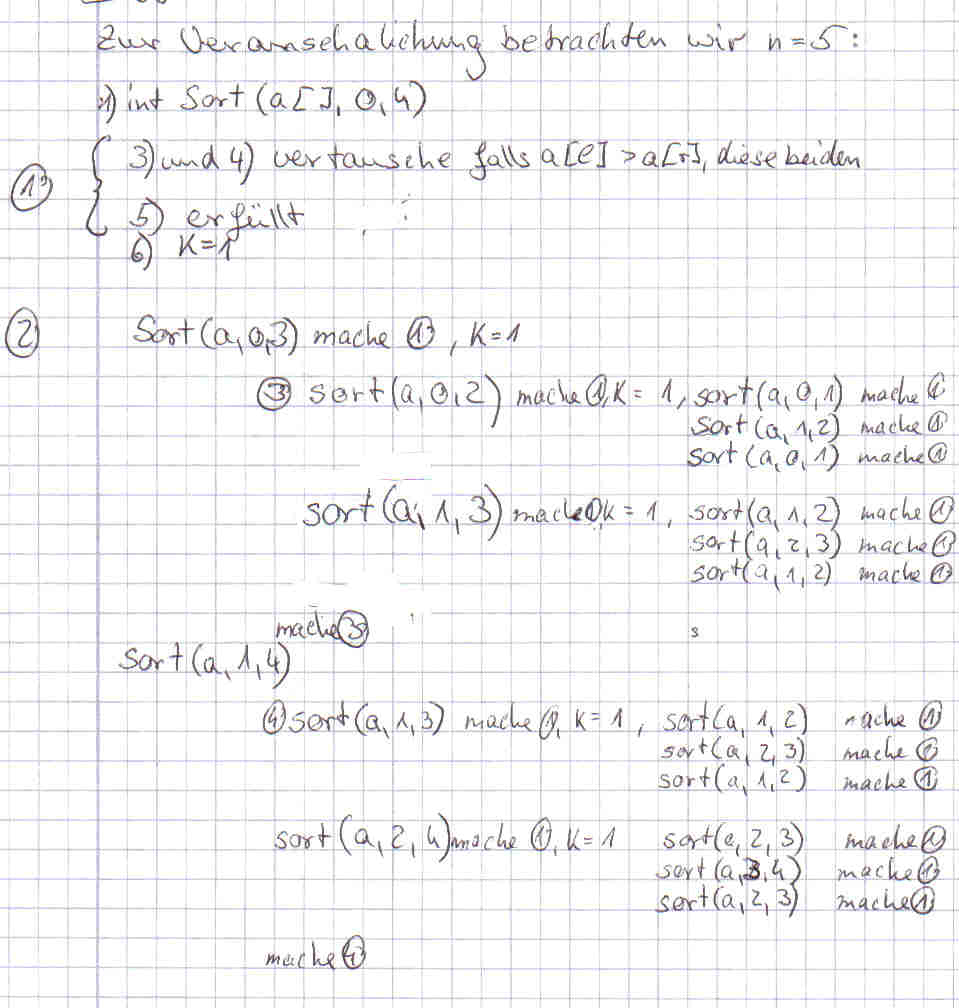 Zur Veranschalichung betrachten wir n=5:
1) int Sort (a[], 0, 4)
3) und 4) vertausche falls a[l] > a[r], diese beiden
① 5) erfüllt
6) K=1
② Sort(a, 0,3) mache ①, K=1
③ sort(a, 0, 2) mache ①, K = 1, sort(a, 0, 1) mache ①
Sort (a, 1, 2) mache ①
Sort (a, 0, 1) mache ①
sort(a, 1, 3) mache ①, K = 1, sort(a, 1, 2) mache ①
sort(a, 2, 3) mache ①
sort(a, 1, 2) mache ①
mache ③
s
Sort(a, 1, 4)
④ sort(a, 1, 3) mache ①, K = 1, sort(a, 1, 2) mache ①
sort(a, 2, 3) mache ①
sort(a, 1, 2) mache ①
sort (a, 2, 4) mache ①, K = 1 sort(a, 2, 3) mache ①
sort (a, 3, 4) mache ①
sort(a, 2, 3) mache ①
mache ④